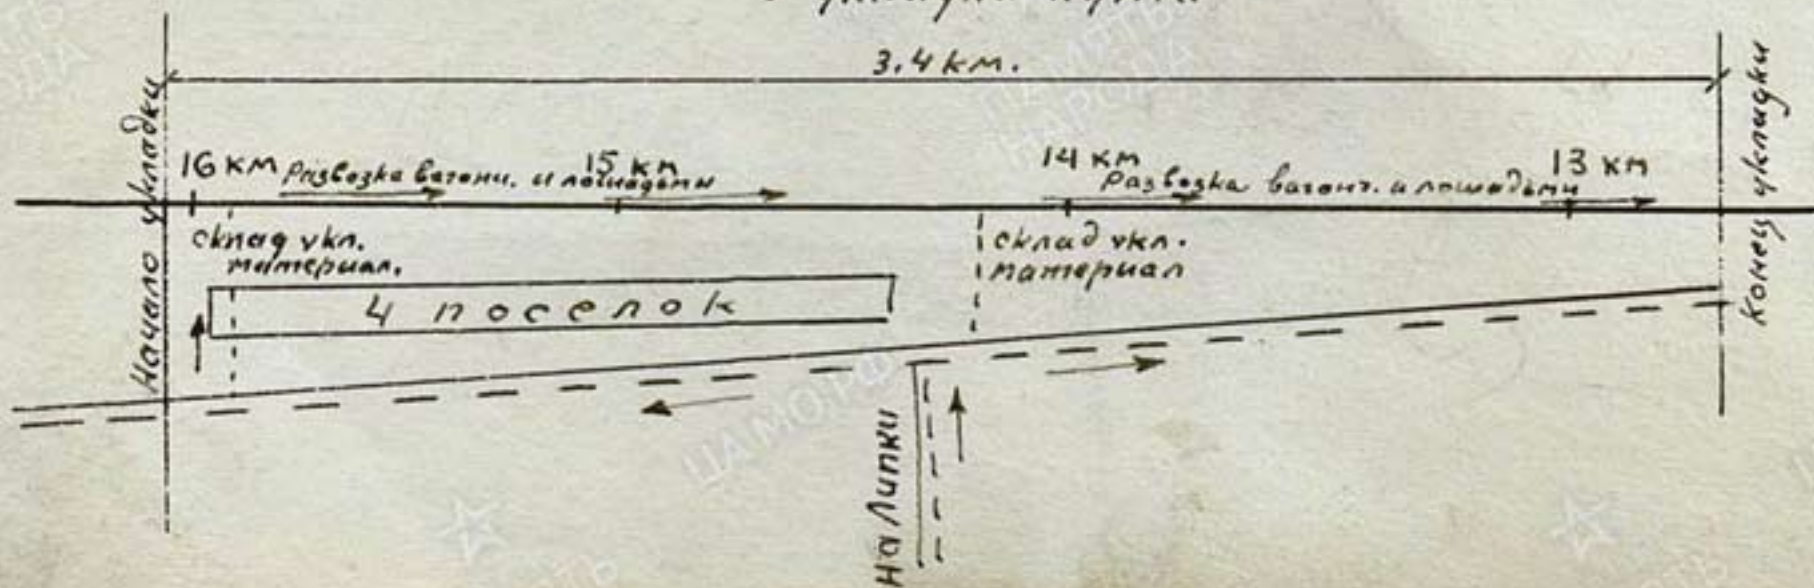 3.4 км.
Начало укладки
16 км
Развозка вагонч. и лошадьми
15 км
14 км
Развозка вагонч. и лошадьми
13 км
Конец укладки
склад укл.
материал.
склад укл.
материал
4 поселок
На Липки
ПАМЯТЬ
НАРОДА
ЦАМО РФ